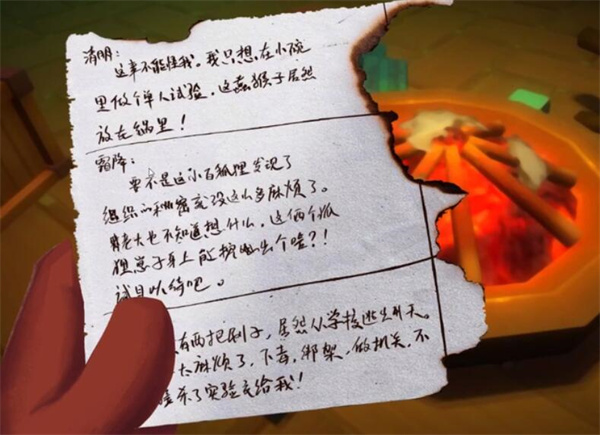 清明:
这事不能怪我。我只想在小碗
里做个单人试验,这蠢猴子居然
放在锅里!
霜降:
要不是这小白狐狸发现了
组织的秘密没这么多麻烦了。
老大也不知道想什么,这俩个狐
狸崽子身上能挖掘出个啥?!
试目以待吧。
有两把刷子,居然从学校逃出升天。
太麻烦了,下毒,绑架,做机关,不
杀了实验交给我!